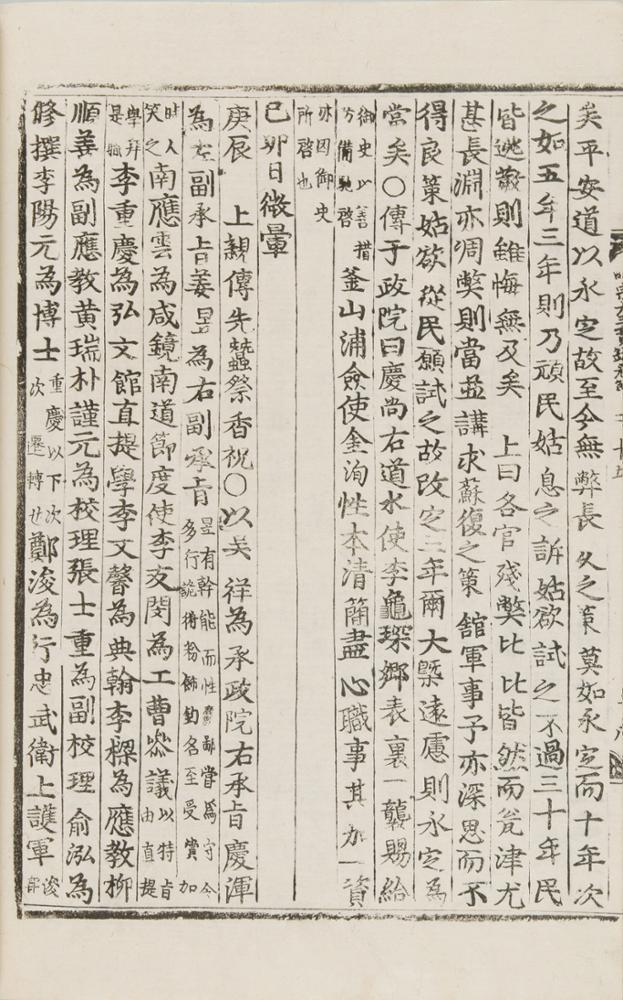 矣平安道以永定故至今無弊長久之策莫如永定而十年次
之如五年三年則乃頑民姑息之訴姑欲試之不過三十年民
皆逃散則雖悔無及矣　上曰各官殘弊比比皆然而瓮津尤
甚長淵亦凋弊則當益講求蘇復之策館軍事予亦深思而不
得良策姑欲從民願試之故改定三年爾大槩遠慮則永定為
當矣○傳于政院曰慶尚右道水使李龜琛鄕表裏一襲賜給
御史以善措
方備馳啓
釜山浦僉使金洵性本清簡盡心職事其加一資
亦因御史
所啓也
己卯日微暈
庚辰　上親傳先蠶祭香祝○以吳祥為承政院右承旨慶渾
為左副承旨姜昱為右副承旨
昱有幹能而性麤鄙嘗為守令
多行詭術粉飾釣名至受賞加
時人
笑之
南應雲為咸鏡南道節度使李友閔為工曹參議
以特旨
由直提
學拜
是職
李重慶為弘文館直提學李文馨為典翰李樑為應教柳
順善為副應教黃瑞朴謹元為校理張士重為副校理俞泓為
修撰李陽元為博士
重慶以下次
次遷轉也
鄭浚為行忠武衛上護軍
浚